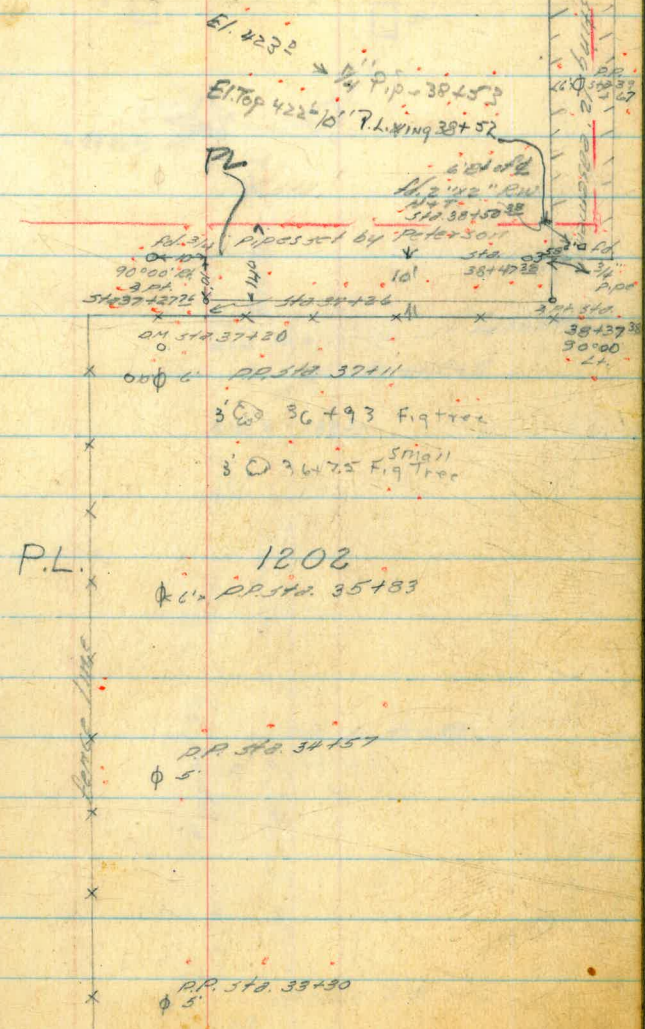 El. 423⁰
3/4" Pipe 38+53
El. Top 422⁶ 10' P.L. Wing 38+52
PL
6'
P.P. Sta 39
67
easement
fd. 2"x2" R/W
Sta. 38+50³⁸
fd. 3/4" pipes set by Peterson
90°00' Rt
140'
10'
Sta.
38+47³⁸
fd
3/4"
pipe
3 pt.
Sta 37+27²⁶
3 pt sta.
38+37³⁸
90°00
Lt.
OM Sta. 37+20
6' P.P. Sta. 37+11
3' 36+93 Fig tree
3' 36+75 small Fig Tree
P.L. 1202
6' P.P. Sta. 35+83
fence line
P.P. Sta. 34+57
5'
P.P. Sta. 33+30
5'